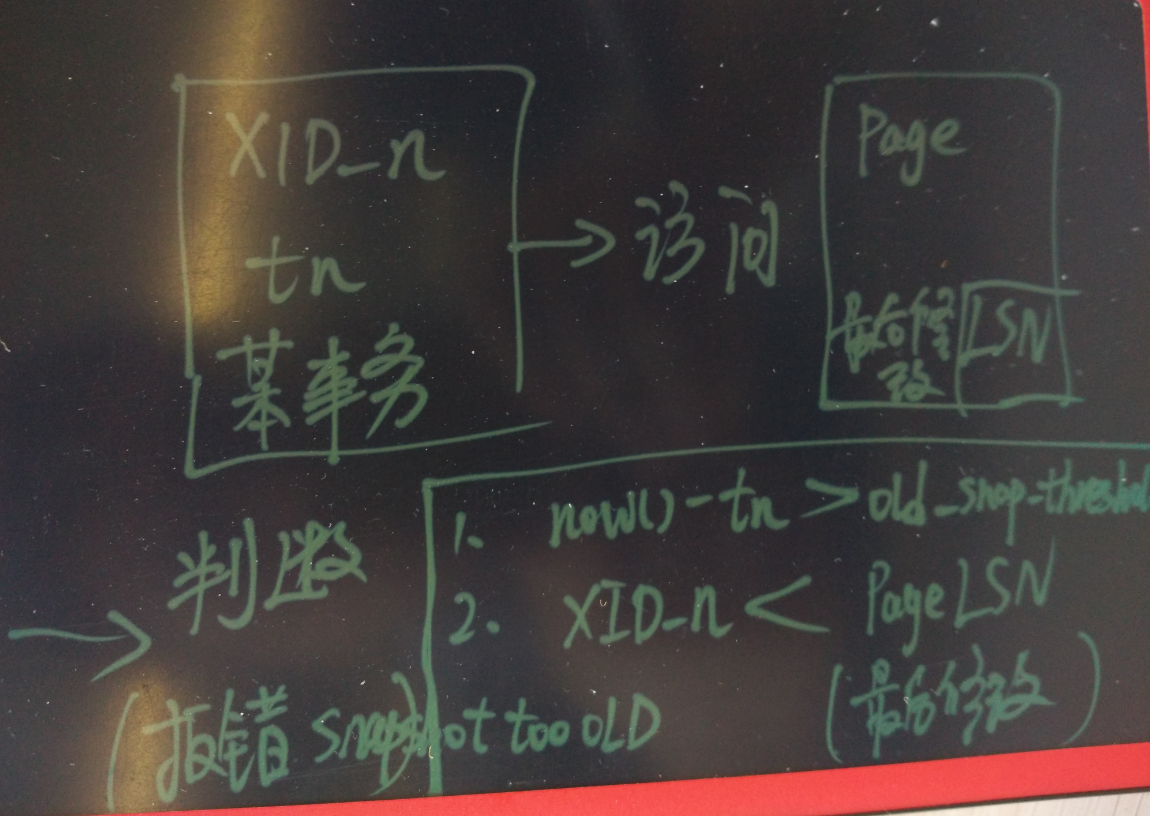 XID_n
tn
某事务
→ 访问
Page
最后修改
LSN
→ 判断
(报错 snapshot too OLD)
1. now() - tn > old_snap_threshold
2. XID_n < Page LSN
(最后修改)